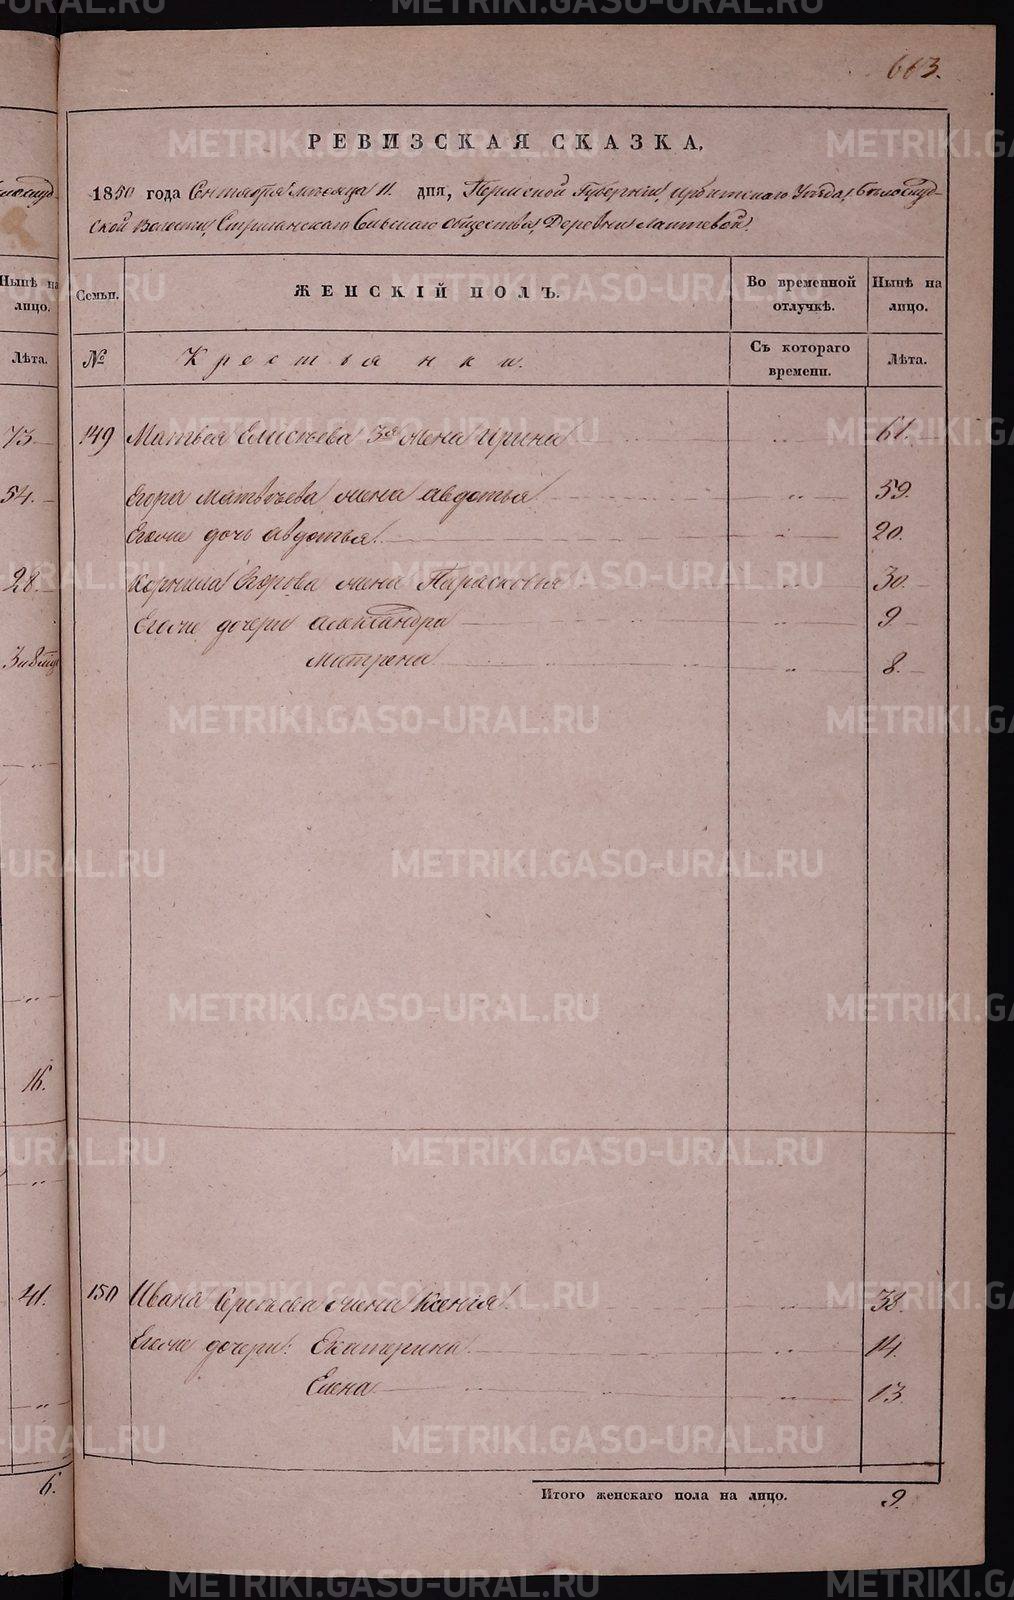 663.
РЕВИЗСКАЯ СКАЗКА.
1850 года Сентября месяца 11 дня, Пермской Губернии, Ирбитскаго Уезда, Белослуд-
ской Волости, Стриганскаго Сельскаго общества, Деревни Лаптевой.
Семьи. ЖЕНСКІЙ ПОЛЪ. Во временной отлучкѣ. Нынѣ на лицо.
№ Крестьянки. Съ котораго времени. Лѣта.
149 Матвея Елисѣева 3я жена Ирина 61.
Егора Матвѣева жена Авдотья 59.
Егоже дочь Авдотья. 20.
Корнила Егорова жена Парасковья 30.
Егоже дочери Александра 9
Матрена 8.
150 Ивана Сергѣева жена Ксенія. 38.
Егоже дочери: Екатерина. 14.
Елена 13.
Итого женскаго пола на лицо. 9.
Нынѣ на лицо.
Лѣта.
73
54.
28.
16.
41.
6.
METRIKI.GASO-URAL.RU